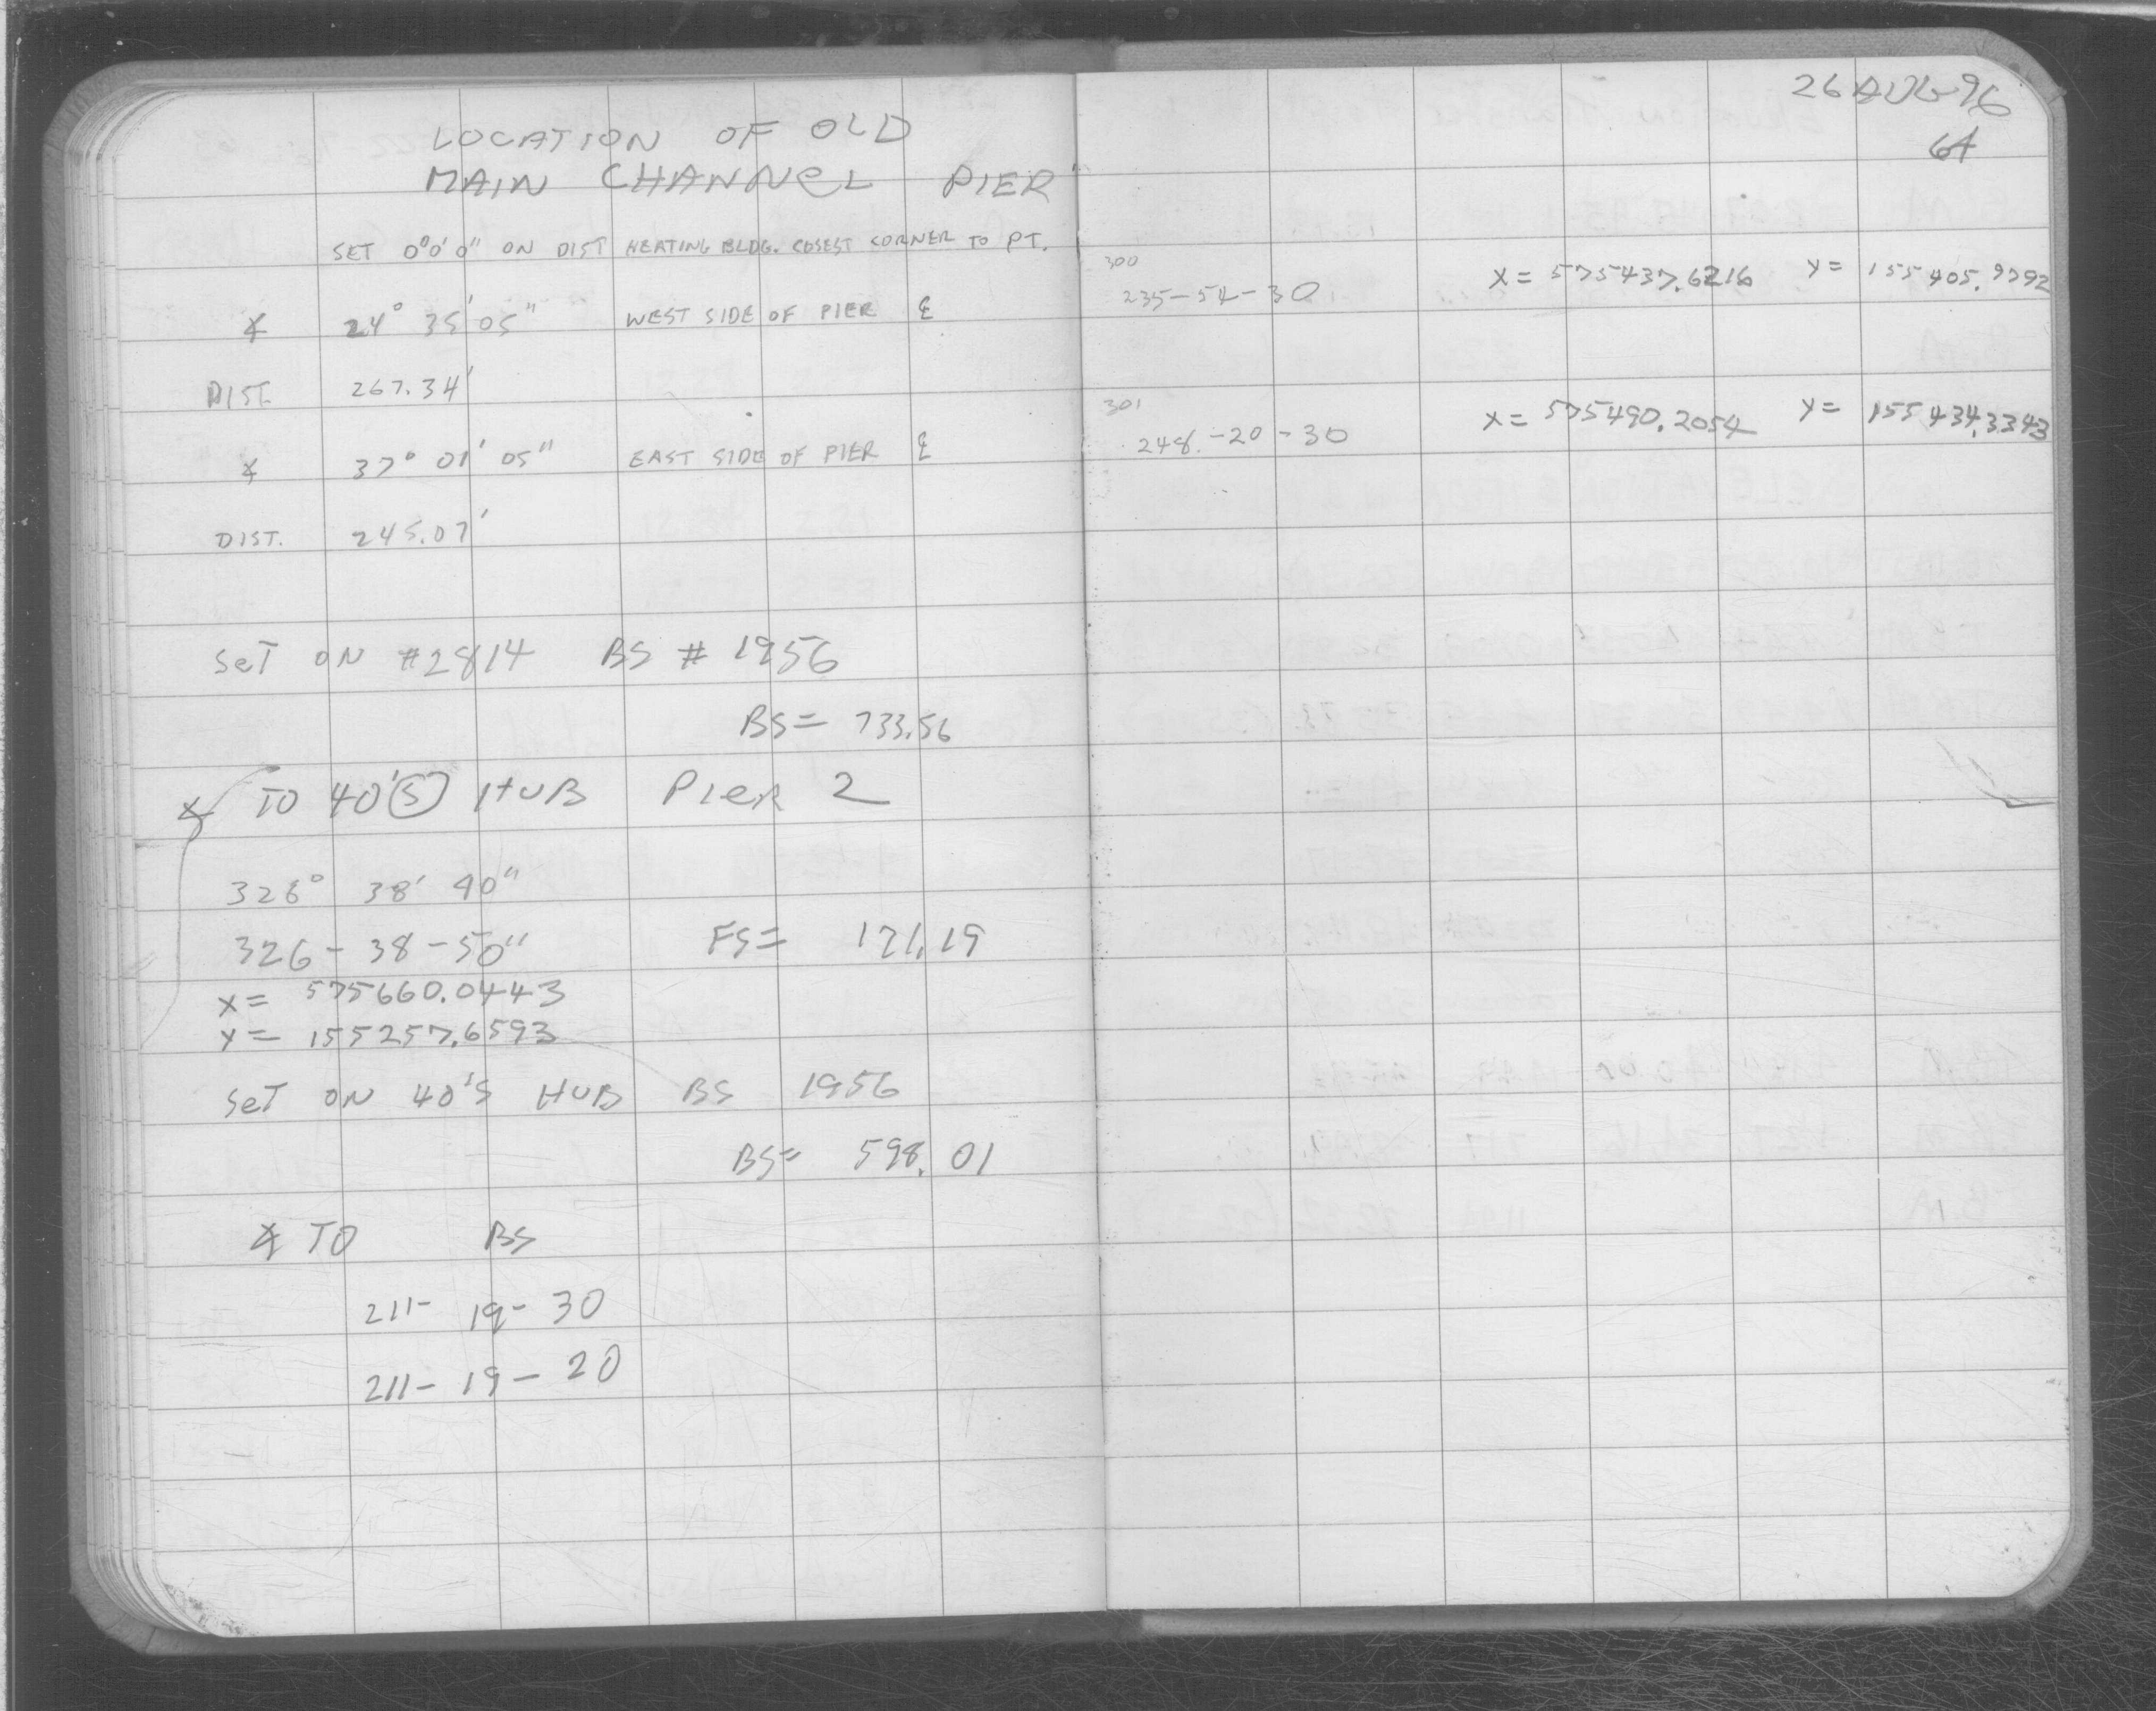 LOCATION OF OLD
MAIN CHANNEL PIER
SET 0°0'0" ON DIST HEATING BLDG. COSEST CORNER TO PT.
∡ 24° 35' 05" WEST SIDE OF PIER ℄
DIST. 267.34'
∡ 37° 01' 05" EAST SIDE OF PIER ℄
DIST. 245.07'
SET ON #2814 BS # 1956
BS= 733.56
∡ TO 40'S HUB PIER 2
326° 38' 40"
326-38-50" FS= 171.19
X= 575660.0443
Y= 155257.6593
SET ON 40'S HUB BS 1956
BS= 598.01
∡ TO BS
211-19-30
211-19-20
26 AUG 96
64
300
235-54-30 X= 575437.6216 Y= 155405.9792
301
248-20-30 X= 575490.2054 Y= 155434.3343